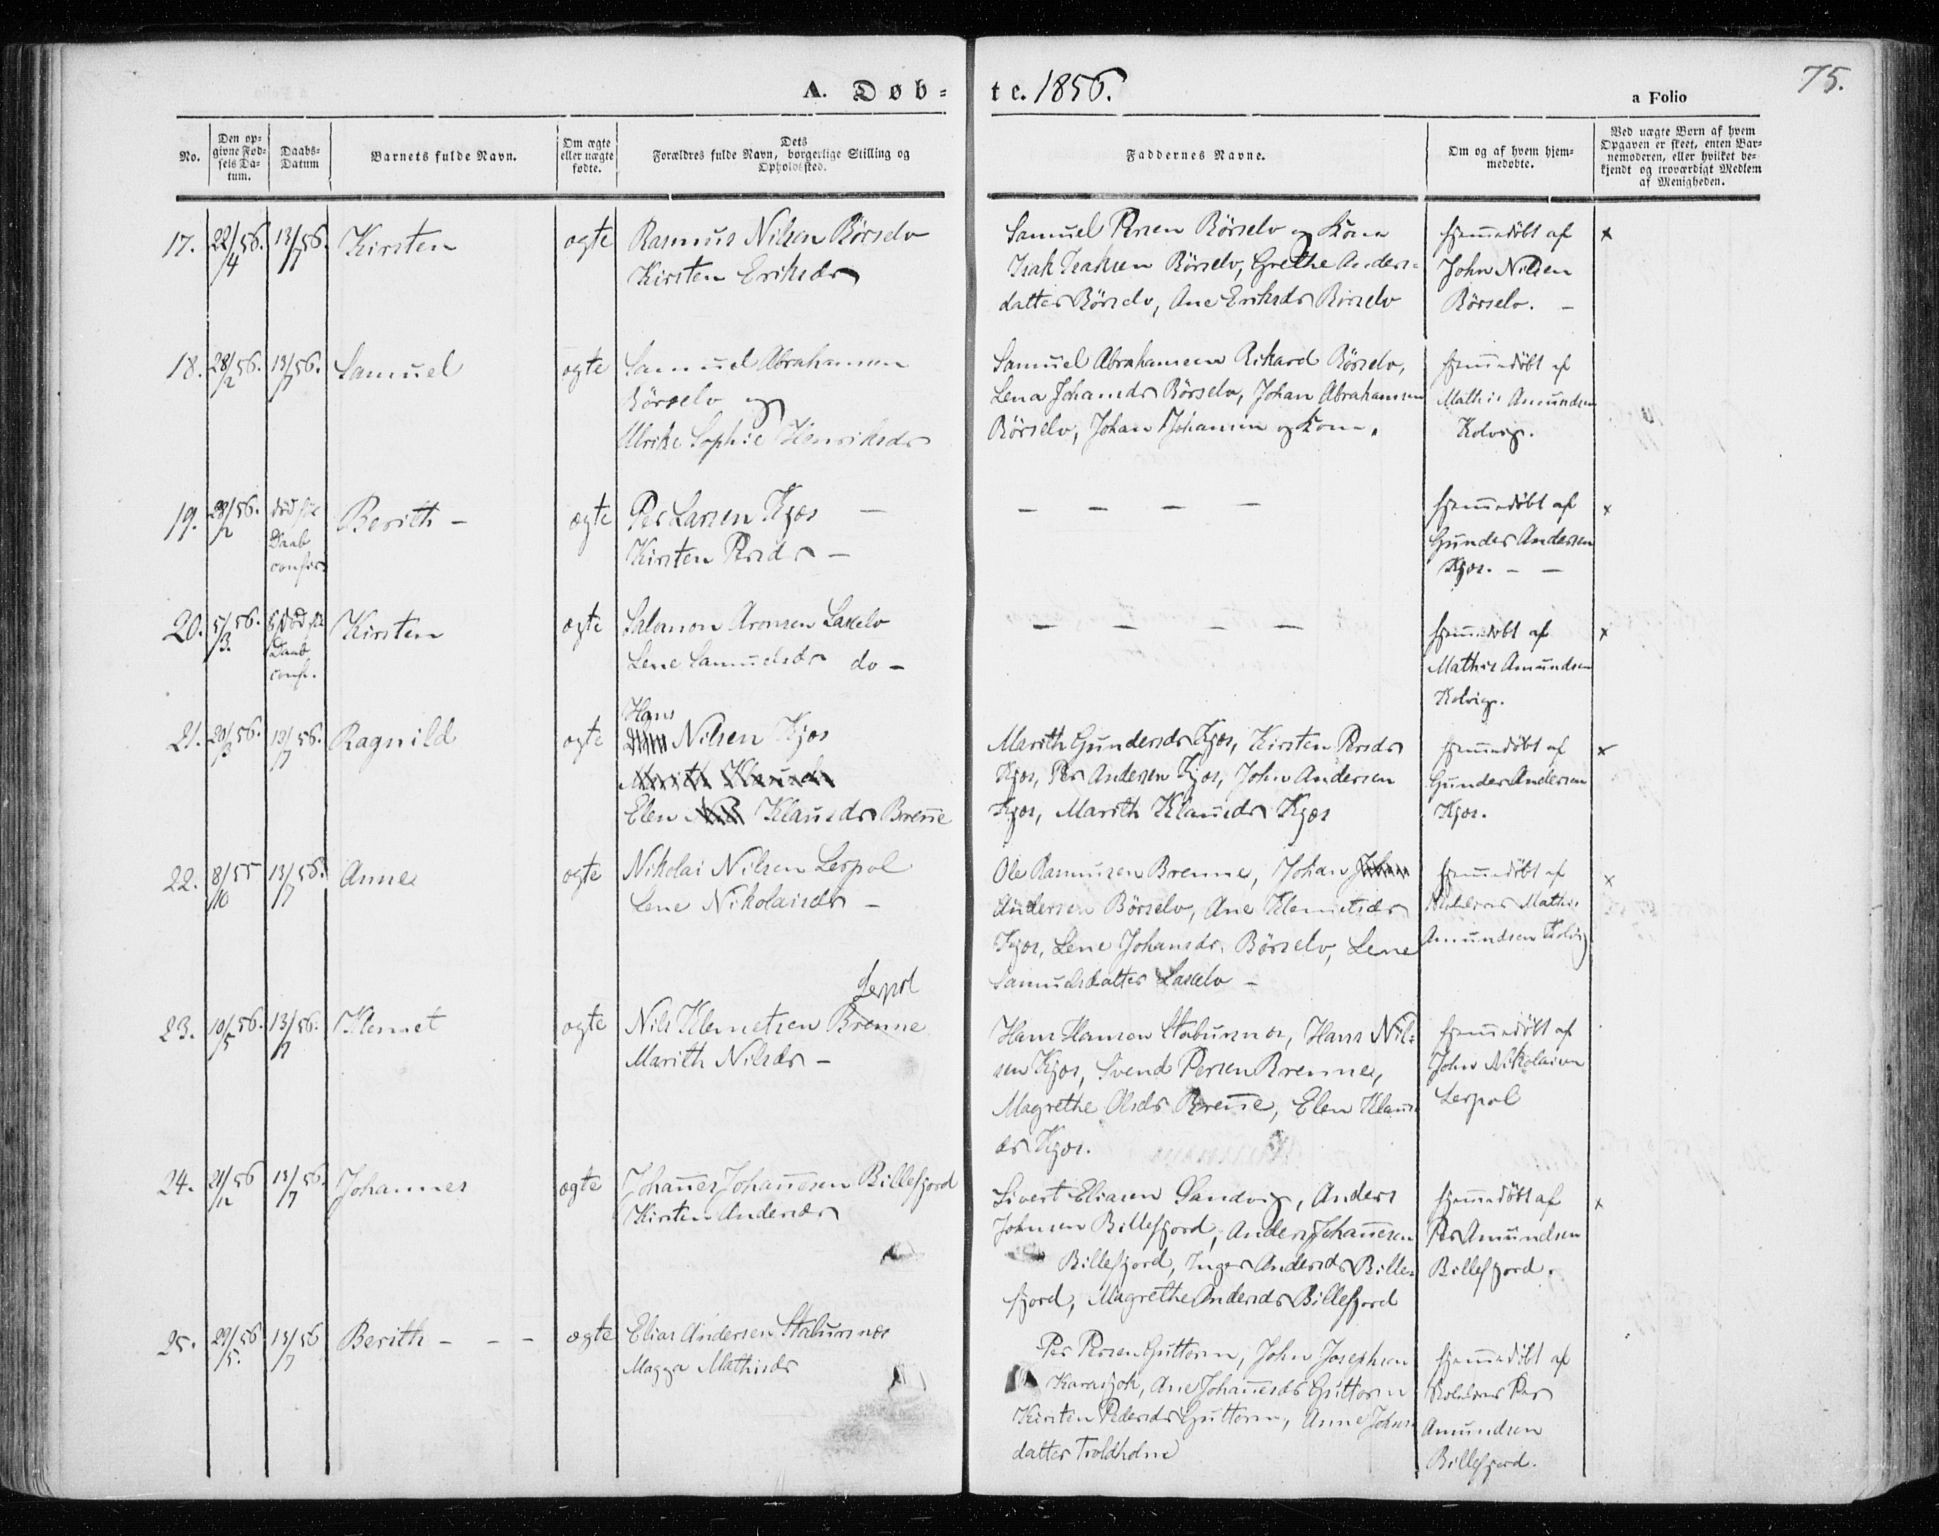 A. Døb-te. 1856.
a Folio
75.
No.
Den opgivne Fødsels Datum.
Daabs-Datum
Barnets fulde Navn.
Om ægte eller uægte fødte.
Dets Forældres fulde Navn, borgerlige Stilling og Opholdssted.
Faddernes Navne.
Om og af hvem hjemmedøbte.
Ved uægte Børn af hvem Opgaven er skeet, enten Barnemoderen, eller hvilket bekjendt og troværdigt Medlem af Menigheden.
17. 22/4 56. 13/7 56. Kirsten ægte
Rasmus Nilsen Børselv
Kirsten Eriksdr
Samuel Persen Børselv og Kone
Isak Isaksen Børselv, Grethe Anders-
datter Børselv, Ane Eriksdr Børselv
hjemmedøbt af
John Nilsen
Børselv. -
x
18. 28/2 56. 13/7 56. Samuel ægte
Samuel Abrahamsen
Børselv og
Ulrike Sophie Henriksdr
Samuel Abrahamsen Rikard Børselv,
Lena Johansdr Børselv, Johan Abrahamsen
Børselv, Johan Johansen og Kone.
hjemmedøbt af
Mathis Amundsen
Kolvig.
19. 56. død før
Daab
confir.
Berith - ægte
Per Larsen Kjæs -
Kirsten Persdr -
- - - -
hjemmedøbt af
Gunder Andersen
Kjæs. - -
x
20. 5/3. 56. død før
Daab
confr.
Kirsten ægte
Salomon Aronsen Laxelv
Lene Samuelsdr do -
- - - -
hjemmedøbt af
Mathis Amundsen
Kolvig.
x
21. 20/3 56. 13/7 56. Ragnild ægte
Hans
Nilsen Kjæs
Elen Klausdr Brenne
Marith Gundersdr Kjæs, Kirsten Persdr
Kjæs, Per Andersen Kjæs, John Andersen
Kjæs, Marith Klausdr Kjæs
hjemmedøbt af
Gunder Andersen
Kjæs.
x
22. 8/10 55 13/7 56. Anne ægte
Nikolai Nilsen Lerpol
Lene Nikolaisdr -
Ole Rasmusen Brenne, Johan
Andersen Børselv, Ane Klemetsdr
Kjæs, Lene Johansdr. Børselv, Lene
Samuelsdatter Laxelv -
hjemmedøbt af
Mathis
Amundsen Kolvig
x
23. 19/5 56. 13/7 56. Klemet ægte
Lerpol
Nils Klemetsen Brenne
Marith Nilsdr -
Hans Hansen Stabursnæs, Hans Nil-
sen Kjæs, Svend Persen Brenne,
Magrethe Olsdr Brenne, Elen Klaus-
dr Kjæs.
hjemmedøbt af
John Nikolaisen
Lerpol
24. 56 13/7 56. Johannes ægte
Johannes Johannesen Billefjord
Kirsten Andersdr
Sivert Eliasen Sandvig, Anders
Johnsen Billefjord, Anders Johannesen
Billefjord, Inger Andersdr Bille-
fjord, Magrethe Andersdr Billefjord
hjemmedøbt af
Per Amundsen
Billefjord.
x
25. 29/5. 56 13/7 56 Berith - - - ægte
Elias Andersen Stabursnæs
Magga Mathisdr
Per Persen Guttorm, John Josephsen
Karasjok, Ane Johannesdr Guttorm
Kirsten Pedersdr Guttorm, Anne Johns-
datter Troldholm
hjemmedøbt af
Per
Amundsen
Billefjord.